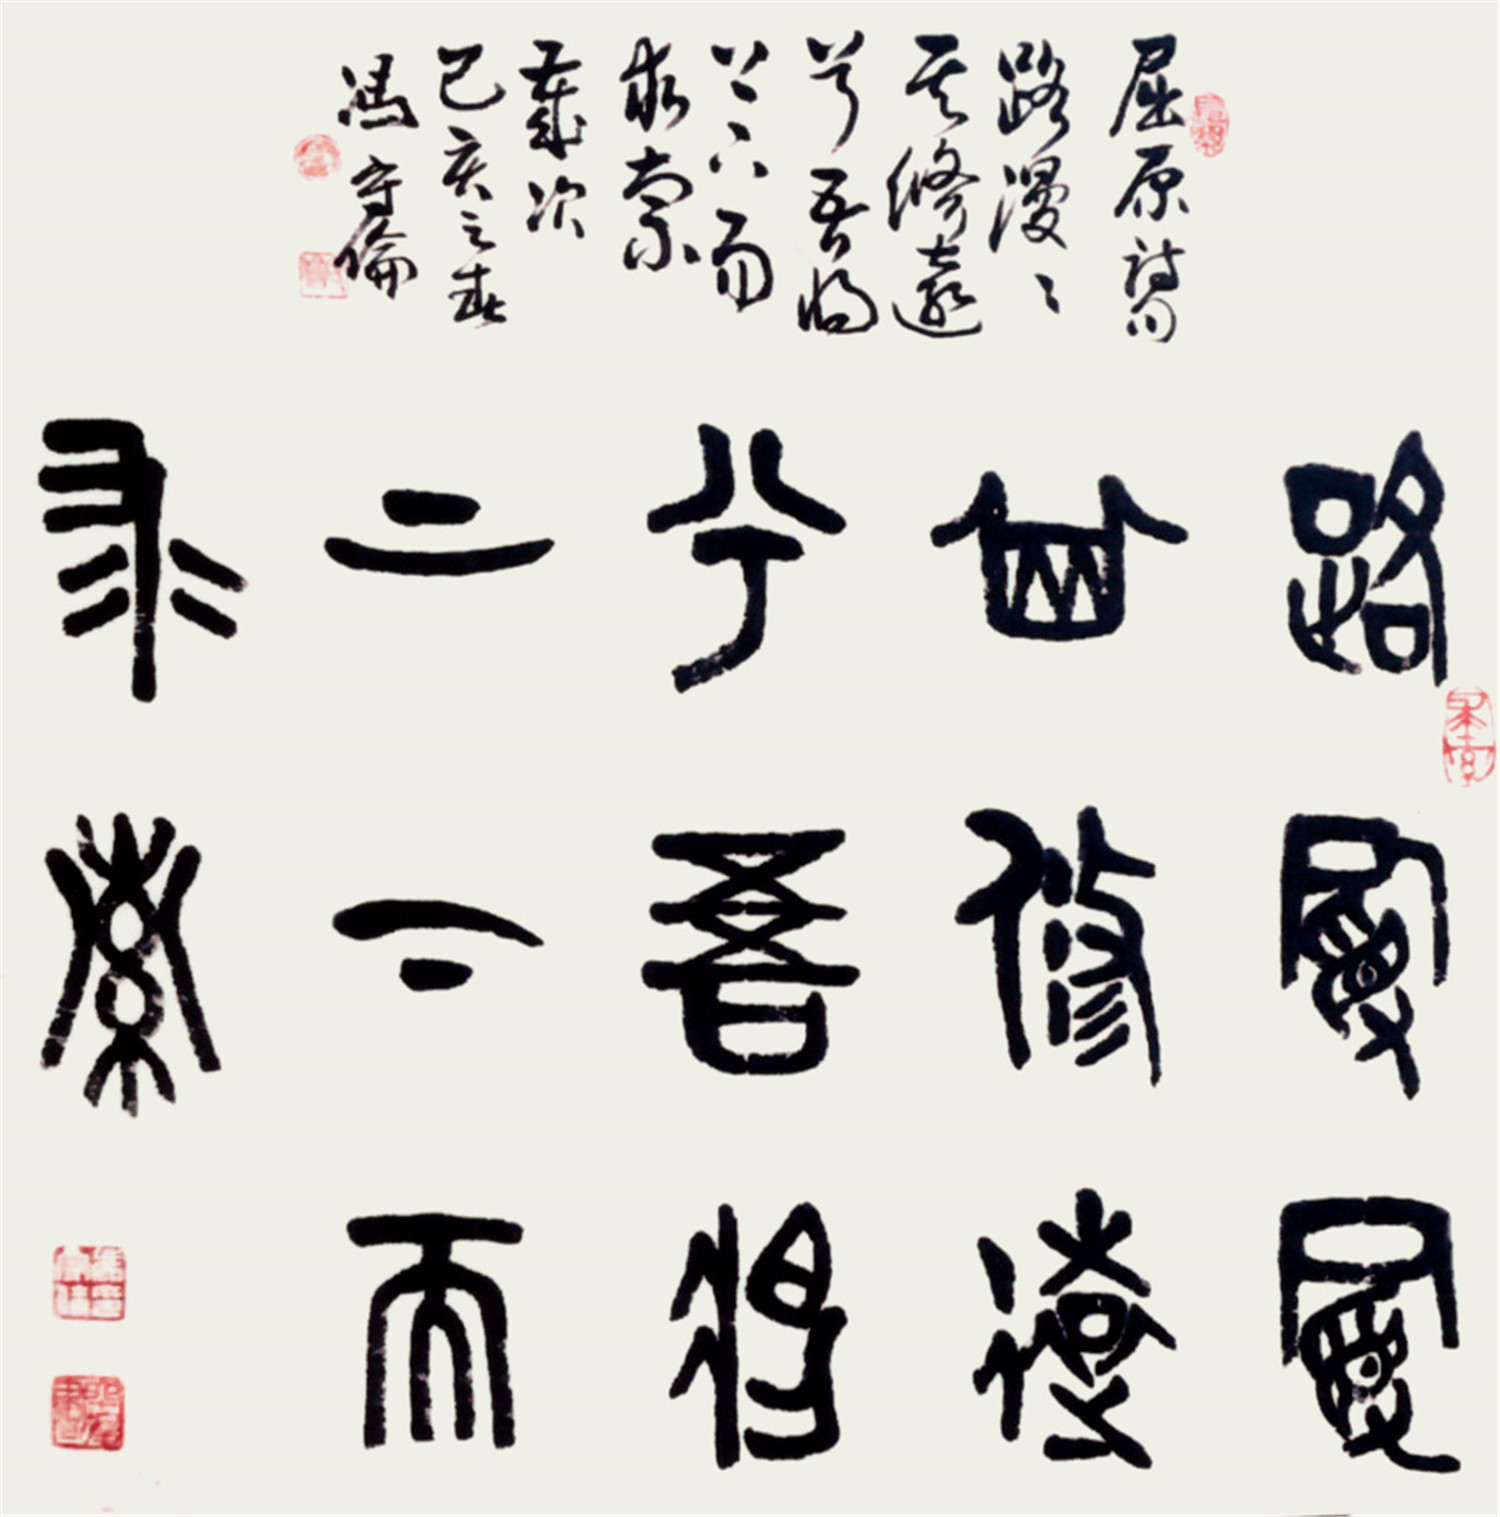 屈原詩句
路漫〻
其修遠
兮吾將
上下而
求索
歲次
己亥之春
馮守倫
路曼曼
其修遠
兮吾將
上下而
求索